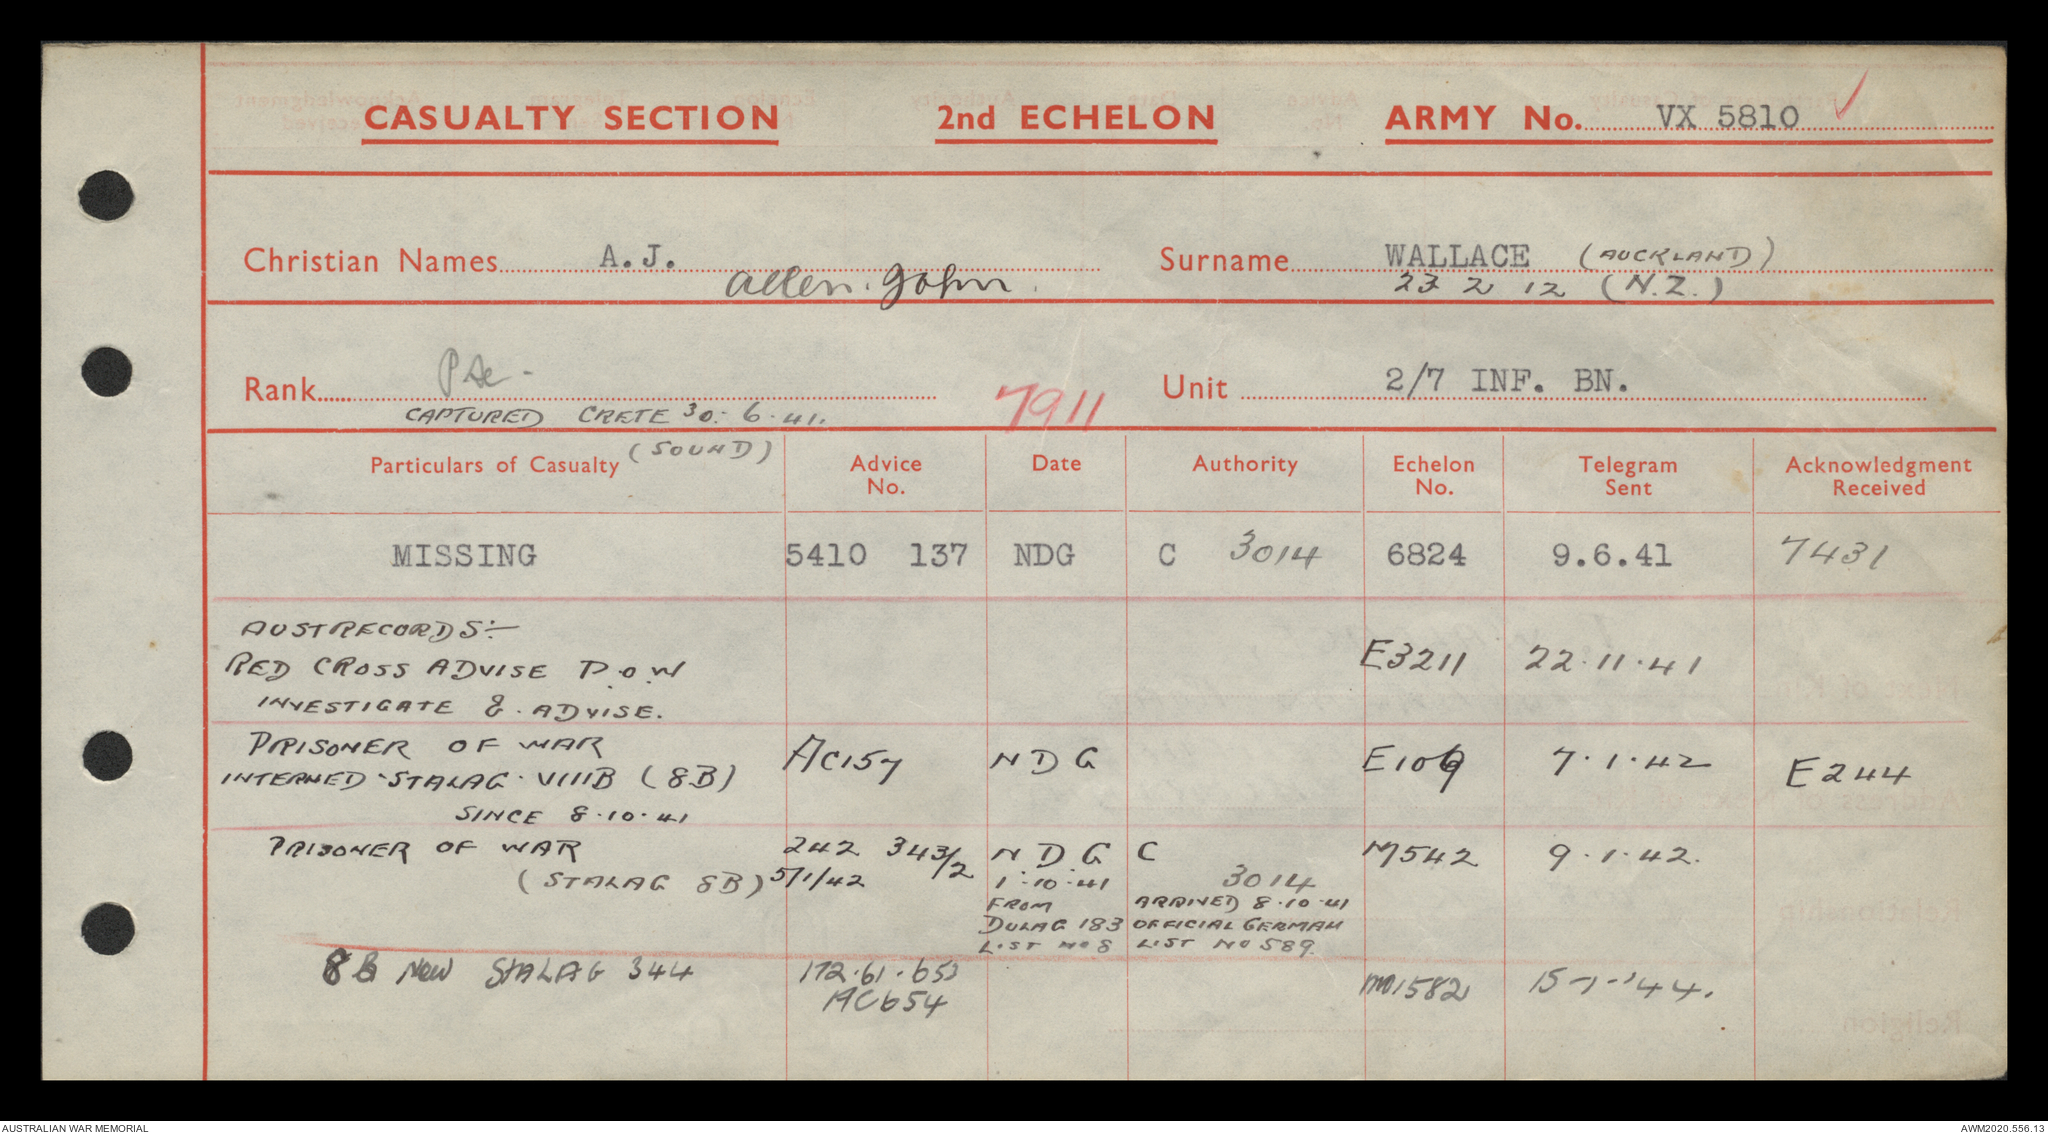 CASUALTY SECTION 2nd ECHELON ARMY No. VX 5810
Christian Names A.J. Surname WALLACE (AUCKLAND)
Allen. John. 23 2 12 (N.Z.)
Rank Pte. Unit 2/7 INF. BN.
CAPTURED CRETE 30.6.41. 7911
(SOUND)
Particulars of Casualty Advice No. Date Authority Echelon No. Telegram Sent Acknowledgment Received
MISSING 5410 137 NDG C 3014 6824 9.6.41 7431
AUSTRECORDS:-
RED CROSS ADVISE P.O.W E3211 22.11.41
INVESTIGATE & ADVISE.
PRISONER OF WAR AC157 NDG E109 7.1.42 E244
INTERNED STALAG VIIIB (8B)
SINCE 8.10.41
PRISONER OF WAR 242 343/2 NDG C M542 9.1.42.
(STALAG 8B) 5/1/42 1.10.41 3014
FROM ARRIVED 8.10.41
DULAG 183 OFFICIAL GERMAN
LIST No 8 LIST No 589
8B New STALAG 344 172.61.653 MO1582 15-1-'44.
AC654
AUSTRALIAN WAR MEMORIAL AWM2020.556.13